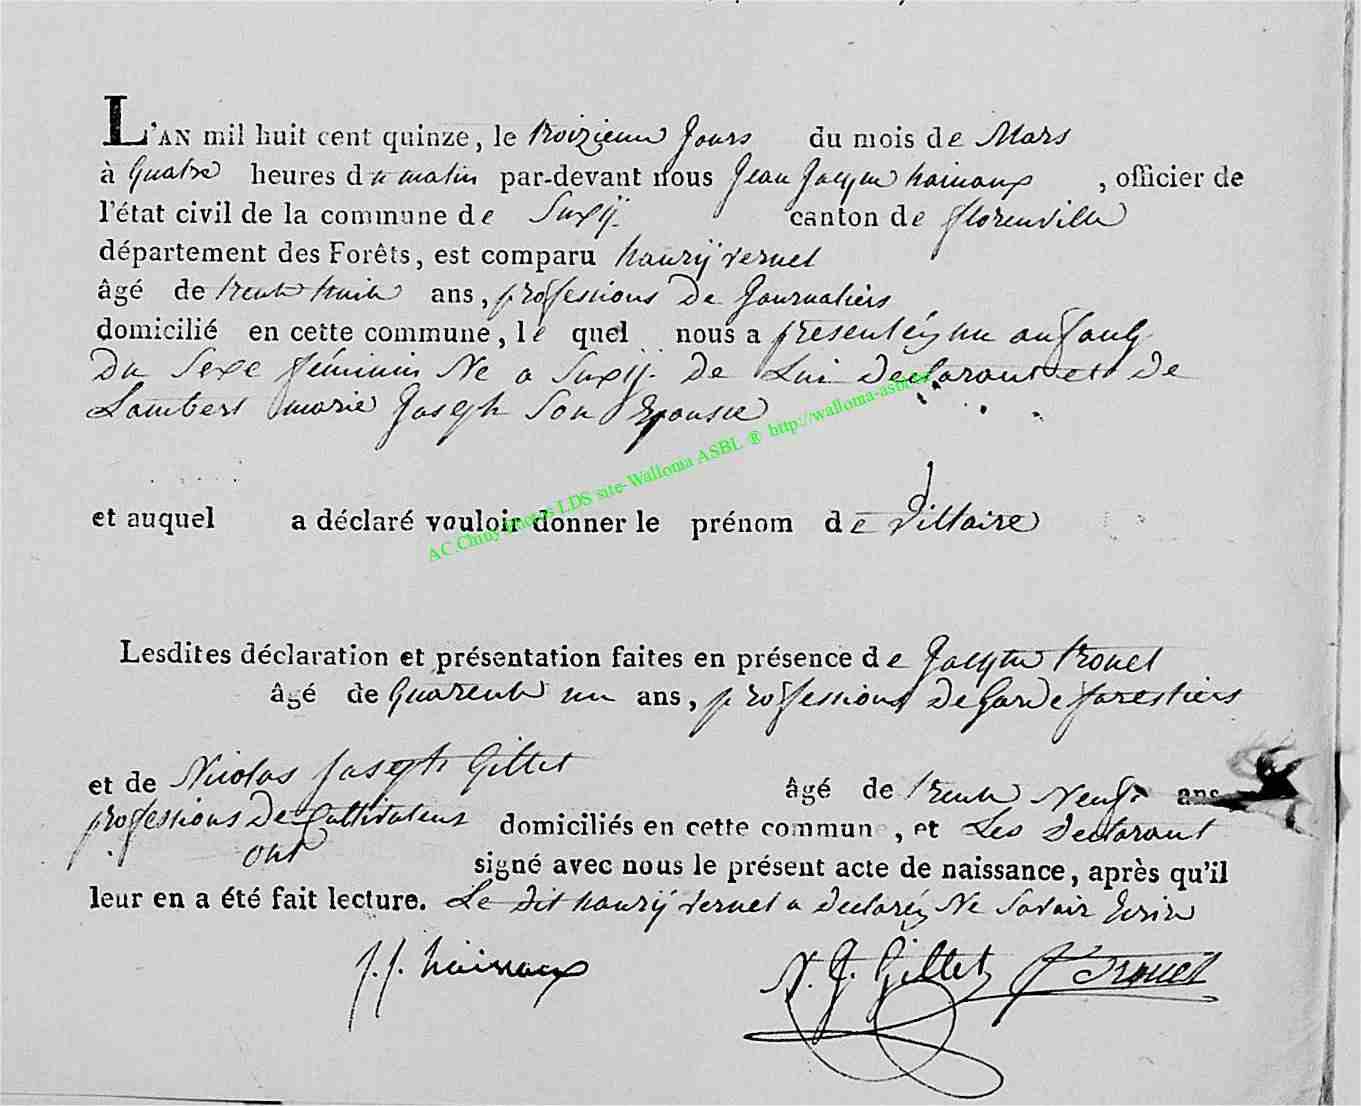 L'AN mil huit cent quinze, le troizieme Jours du mois de Mars
à Quatre heures du matin par-devant nous Jean Jacque hainaux, officier de
l'état civil de la commune de Suxÿ. canton de florenville
département des Forêts, est comparu hanrÿ vernel
âgé de trente huit ans, professions De Journaliers
domicilié en cette commune, le quel nous a presentéz un anfant
Du Sexe féminin Ne a Suxÿ. De Lui Declarant et De
Lambert marie Joseph Son Epousee
et auquel a déclaré vouloir donner le prénom de Villaire
Lesdites déclaration et présentation faites en présence de Jacque trouet
âgé de Quarente un ans, professions De Garde forestiers
et de Nicolas Joseph Gillet âgé de trente Neuf ans
professions De Cultivateur domiciliés en cette commune, et Les Declarant
ont signé avec nous le présent acte de naissance, après qu'il
leur en a été fait lecture. Le dit hanrÿ vernel a Declaréz Ne Savoir Ecrire
J. J. hainaux N. J. Gillet J trouet
AC Chiny Photos LDS site-Wallonia ASBL ® http://wallonia-asbl.be